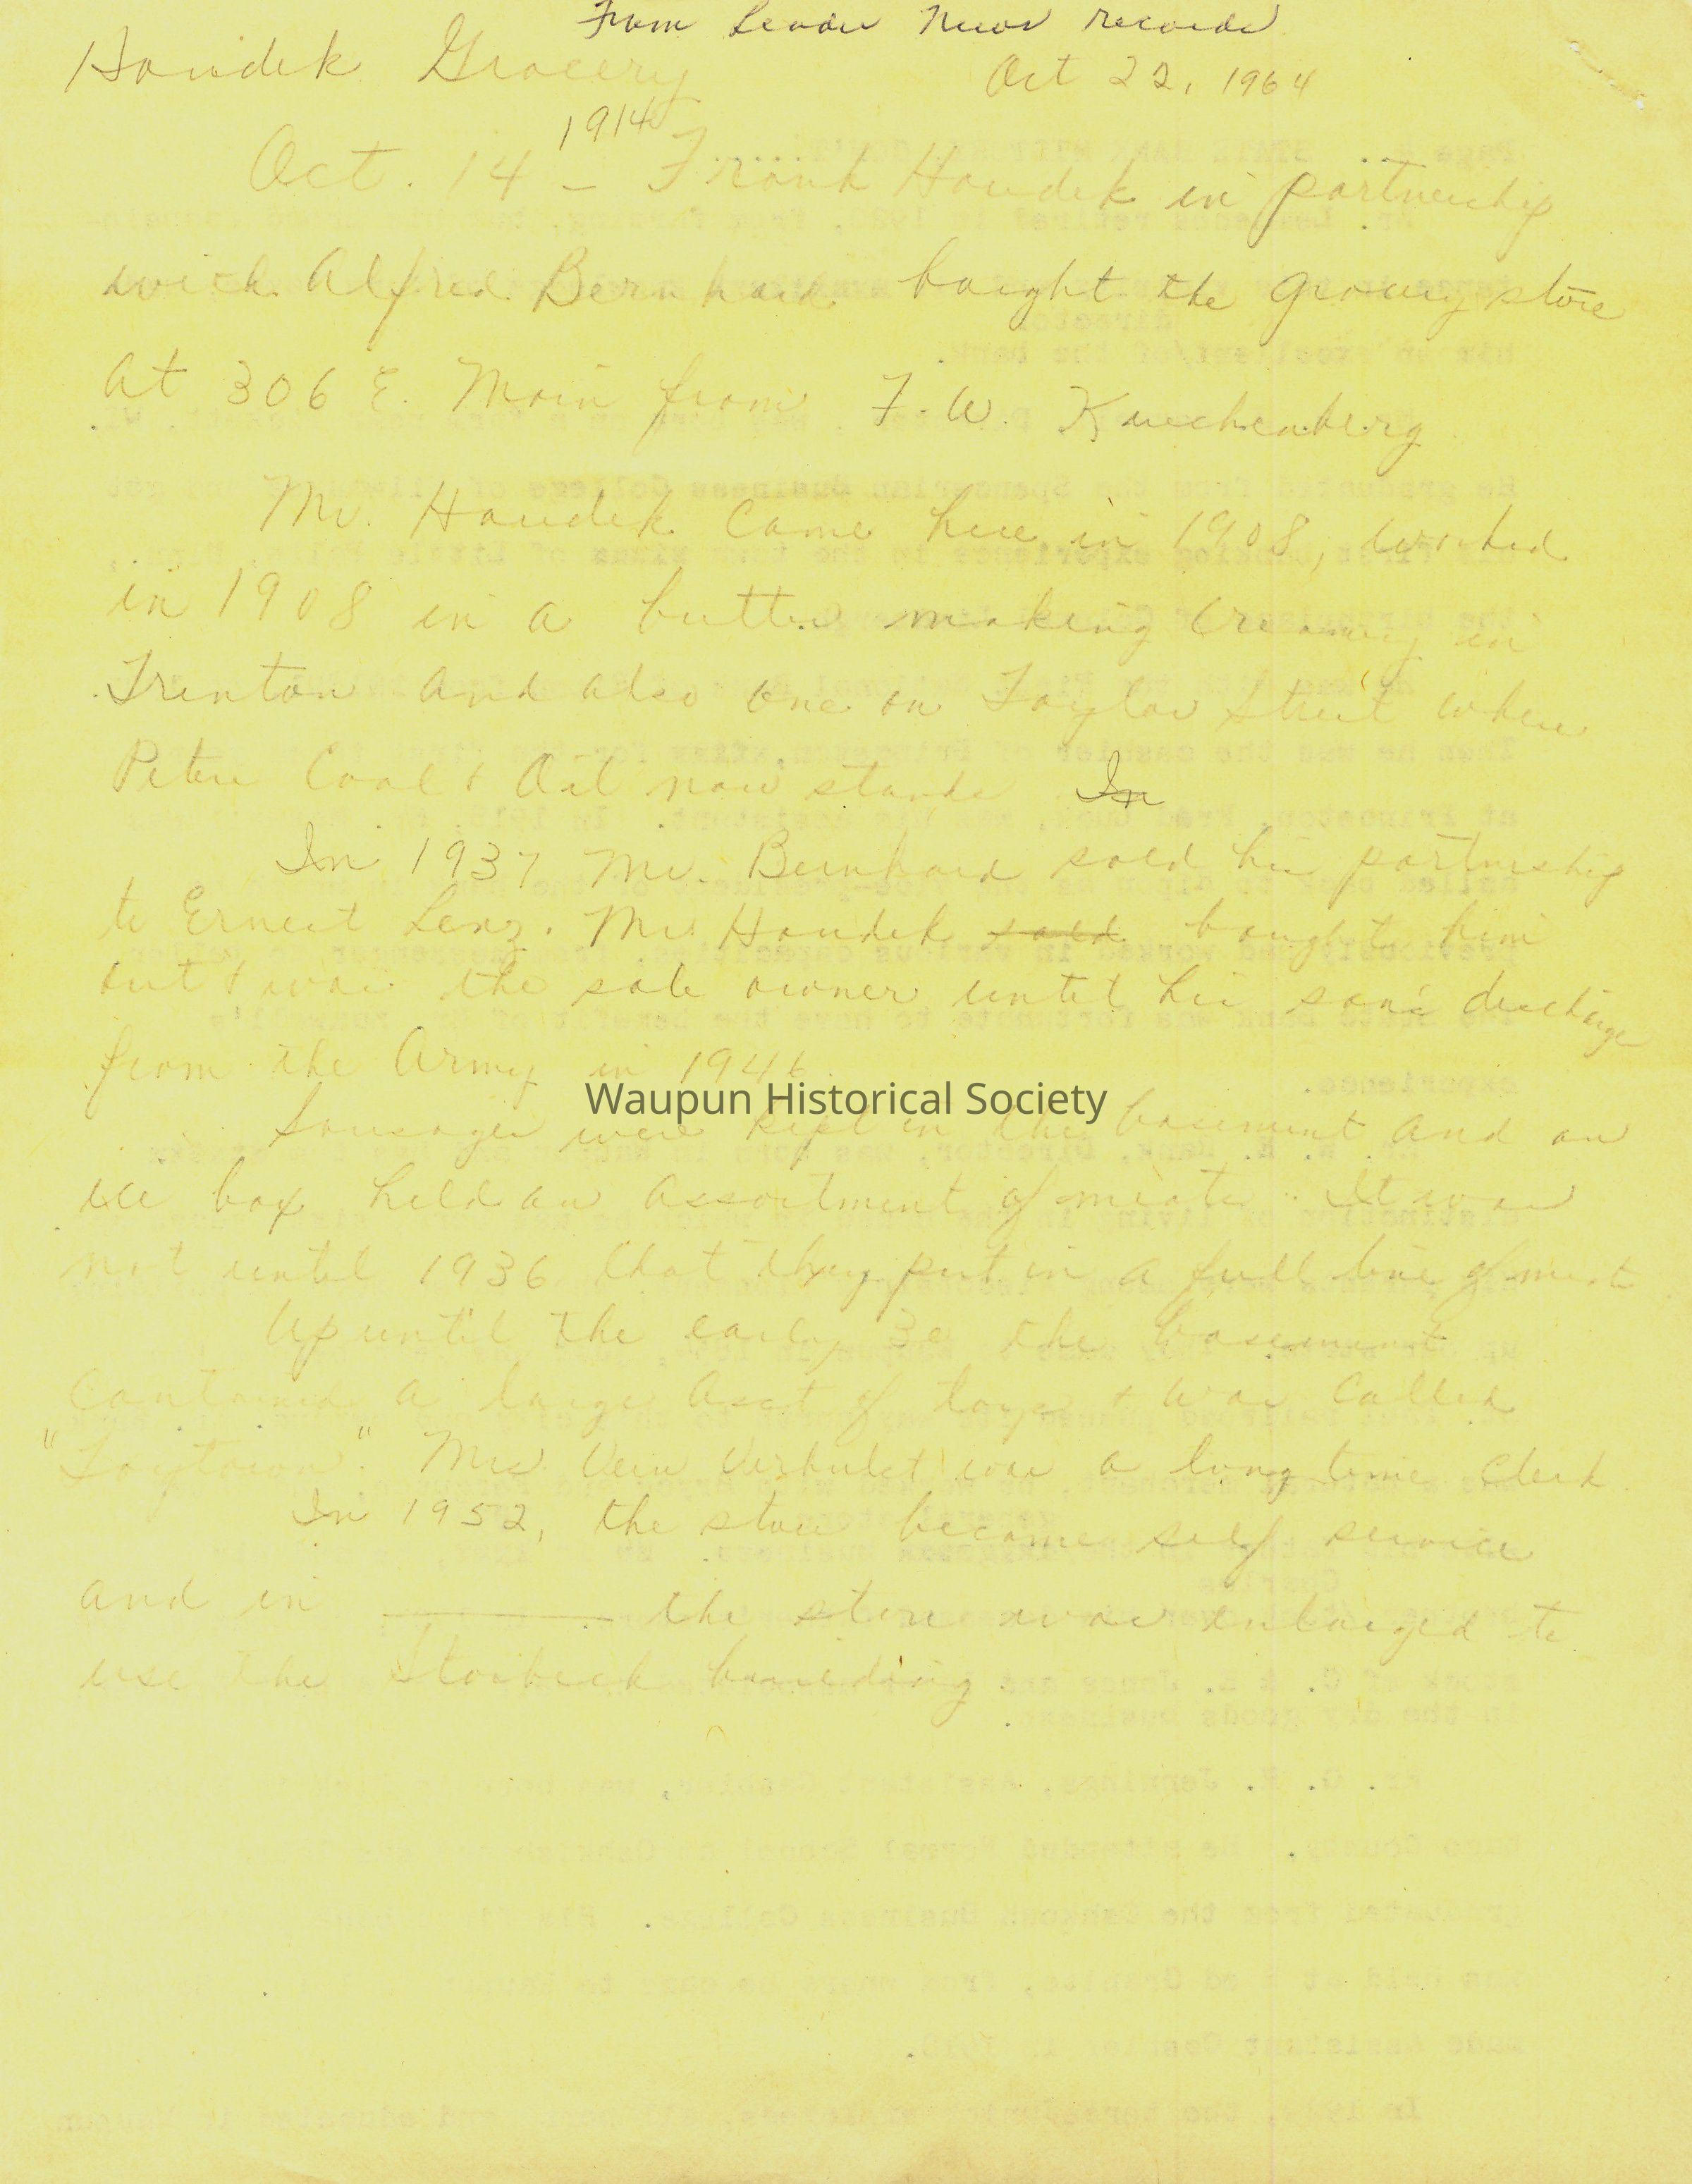 From Leader News records
Houdek Grocery
Oct 22, 1964
1914
Oct. 14 – Frank Houdek in partnership
with Alfred Bernhard bought the grocery store
at 306 E. Main from F. W. Kuechenberg
Mr. Houdek came here in 1908, worked
in 1908 in a butter making creamery in
Trenton and also one on Taylor Street where
Peters Coal & Oil now stands In
In 1937 Mr. Bernhard sold his partnership
to Ernest Lenz. Mr. Houdek sold bought him
out & was the sole owner until his son's discharge
from the Army in 1946.
Waupun Historical Society
Sausages were kept in the basement and an
ice box held an assortment of meats. It was
not until 1936 that they put in a full line of meat
Up until the early 30 the basement
contained a large asst of toys & was called
"Toytown". Mrs Vern Verhulst was a long time clerk.
In 1952, the store became self service
and in ________ the store was enlarged to
use the Storbeck building